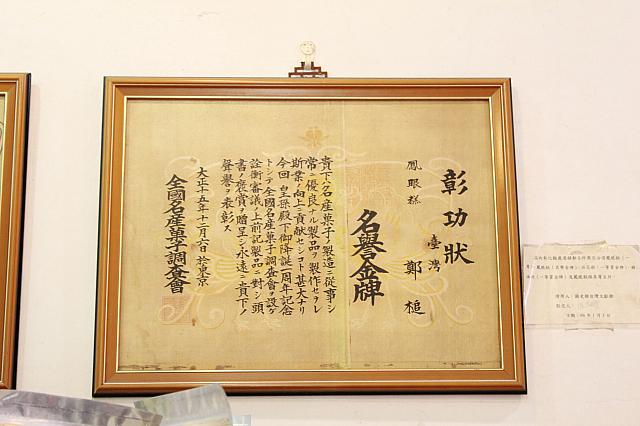 彰功状
鳳眼糕
臺灣 鄭槌
名譽金牌
貴下ハ名産菓子ノ製造ニ從事シ
常ニ優良ナル製品ヲ製作セラレ
斯業ノ向上ニ貢献セシコト甚大ナリ
今回 皇孫殿下御降誕一周年記念
トシテ全國名産菓子調査會ヲ設ケ
詮衡審議ノ上前記製品ニ對シ頭
書ノ褒賞ヲ贈呈シ永遠ニ貴下ノ
聲譽ヲ表彰ス
大正十五年十二月六日 於東京
全國名産菓子調査會